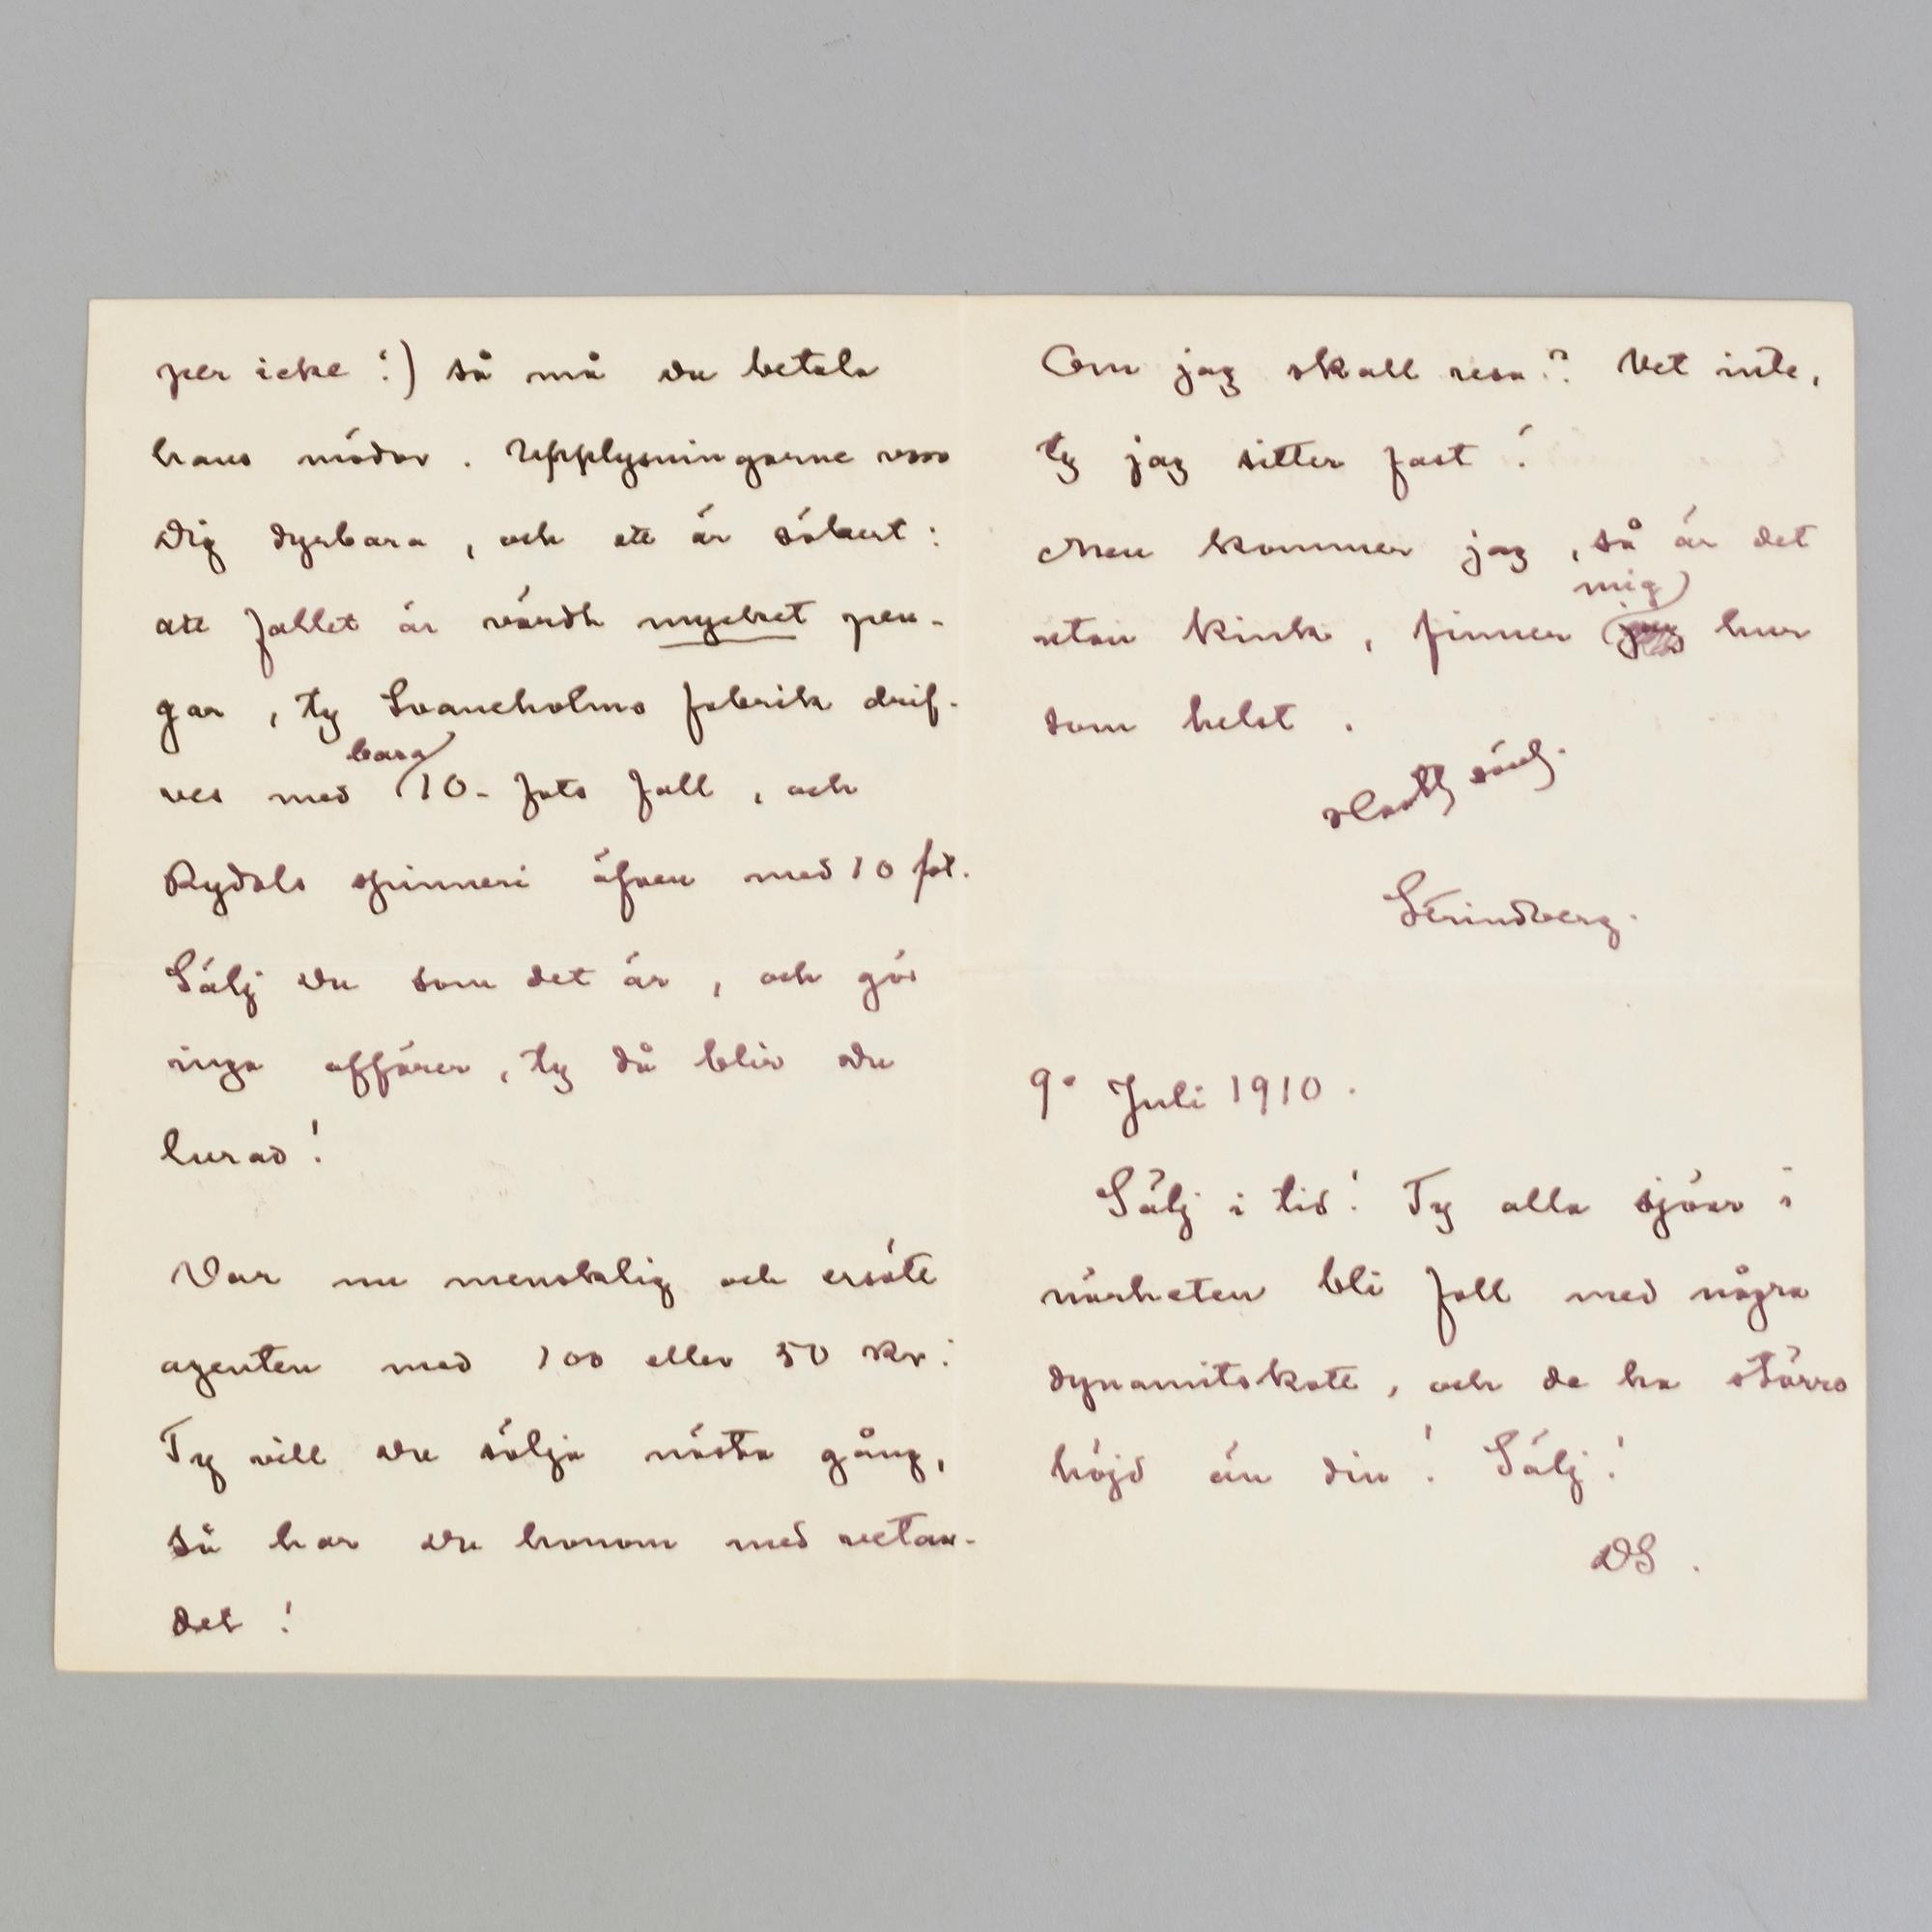 per icke!) så må du betala
hans mödor. Upplysningarne voro
Dig dyrbara, och ett är säkert:
att fallet är värdt mycket pen-
gar, ty Svaneholms fabrik drif-
ves med bara 10-fots fall, och
Rydals spinneri äfven med 10 fot.
Sälj Du som det är, och gör
inga affärer, ty då blir du
lurad!
Var nu mensklig och ersätt
agenten med 100 eller 50 Kr:
Ty vill du sälja nästa gång,
så har du honom med vetan-
det!
Om jag skall resa?? Vet inte,
ty jag sitter fast!
Men kommer jag, så är det
utan kink, finner mig hur
som helst.
Strindberg.
9e Juli 1910.
Sälj i tid! Ty alla sjöar i
närheten bli fall med några
dynamitskott, och de ha större
höjd än din! Sälj!
DS.